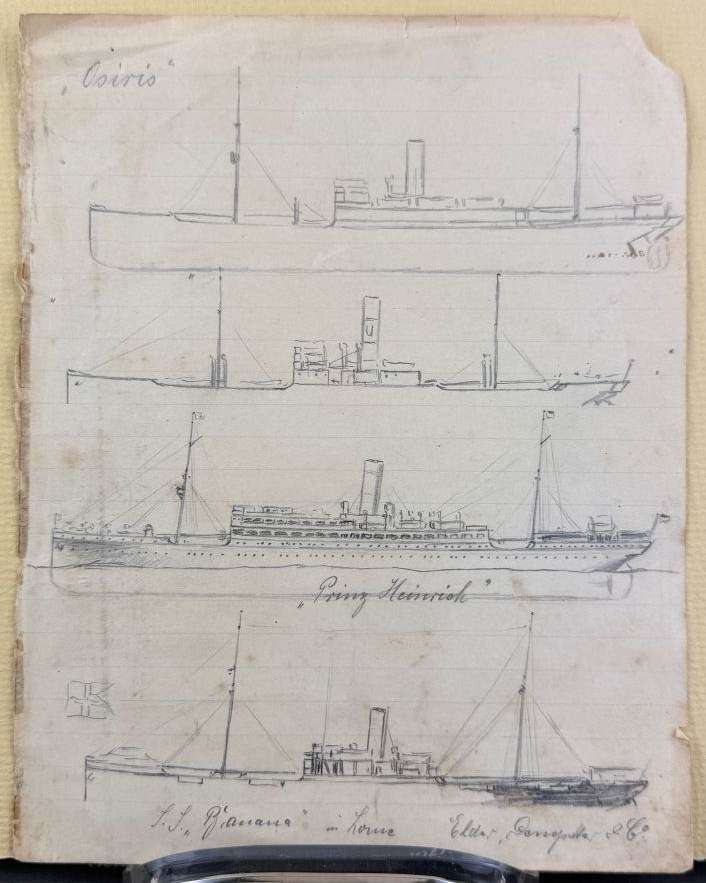 „Osiris“
„Prinz Heinrich“
S.S. „Banana“ in Lome Elder, Dempster & Co